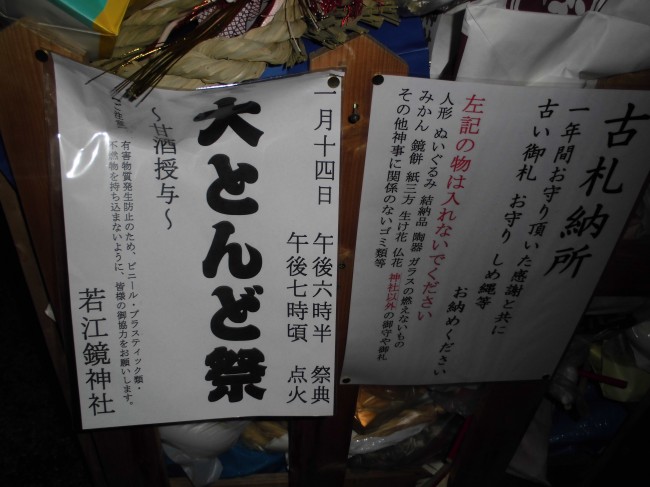 古札納所
一年間お守り頂いた感謝と共に
古い御札 お守り しめ縄等
お納めください
左記の物は入れないでください
人形 ぬいぐるみ 結納品 陶器 ガラスの燃えないもの
みかん 鏡餅 紙三方 生け花 仏花 神社以外の御守や御札
その他神事に関係のないゴミ類等
一月十四日 午後六時半 祭典
午後七時頃 点火
大とんど祭
～甘酒授与～
有害物質発生防止のため、ビニール・プラスティック類・
不燃物を持ち込まないように、皆様の御協力をお願いします。
若江鏡神社